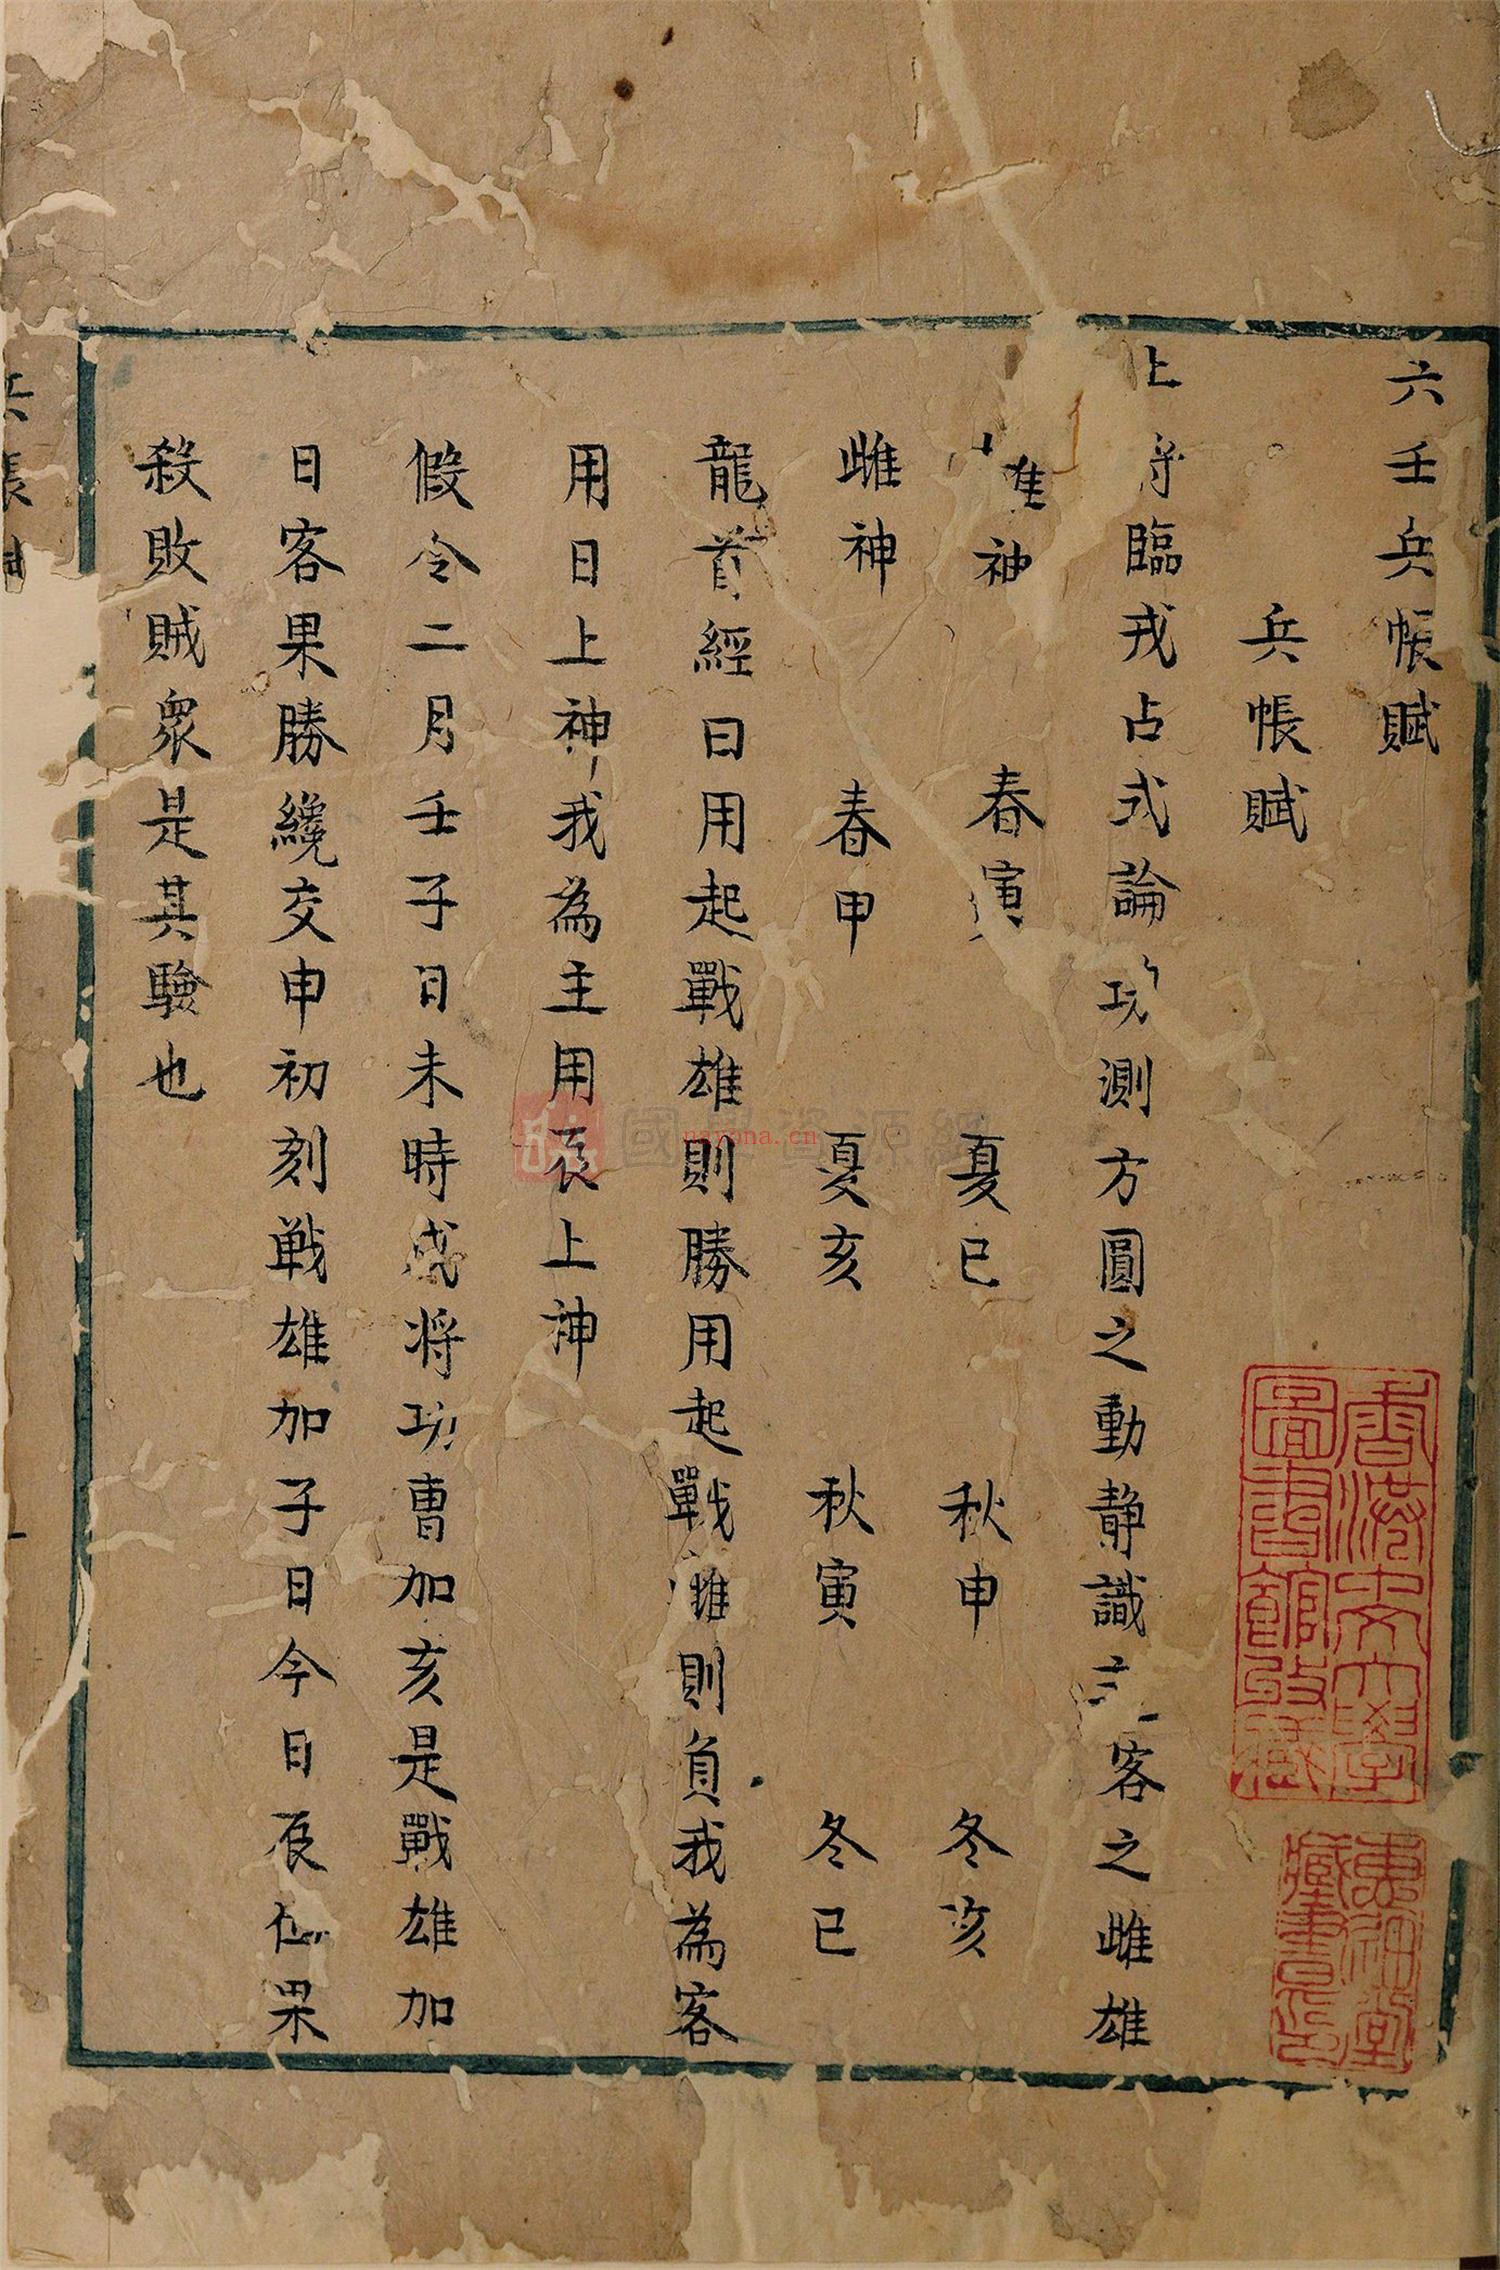 六壬兵帳賦
兵帳賦
上將臨戎占式論功測方圓之動靜識主客之雌雄
雄神 春寅 夏巳 秋申 冬亥
雌神 春申 夏亥 秋寅 冬巳
龍首經曰用起戰雄則勝用起戰雌則負我為客
用日上神我為主用辰上神
假令二月壬子日未時戌将功曹加亥是戰雄加
日客果勝纔交申初刻戰雄加子日今日辰位果
殺敗賊衆是其驗也
兵帳賦
一
香港中文大學
圖書館
藏書
國學資源網
nayona.cn